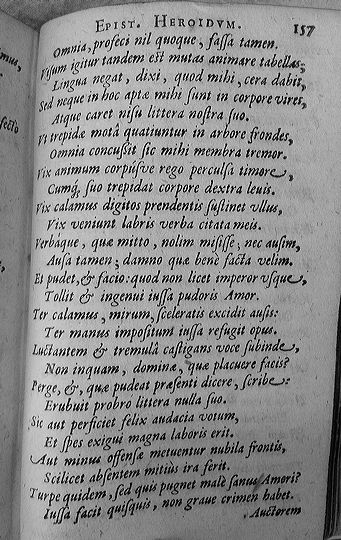 EPIST. HEROIDVM. 157
Omnia, profeci nil quoque, fassa tamen.
Visum igitur tandem est mutas animare tabellas;
Lingua negat, dixi, quod mihi, cera dabit,
Sed neque in hoc aptæ mihi sunt in corpore vires,
Atque caret nisu littera nostra suo.
Vt trepidæ motâ quatiuntur in arbore frondes,
Omnia concussit sic mihi membra tremor.
Vix animum corpúsve rego perculsa timore,
Cumq́, suo trepidat corpore dextra leuis.
Vix calamus digitos prendentis sustinet vllus,
Vix veniunt labris verba citata meis.
Verbáque, quæ mitto, nolim misisse; nec ausim,
Ausa tamen; damno quæ benè facta velim.
Et pudet, & facio: quod non licet imperor vsque,
Tollit & ingenui iussa pudoris Amor.
Ter calamus, mirum, sceleratis excidit ausis:
Ter manus impositum iussa refugit opus.
Luctantem & tremulâ castigans voce subinde,
Non inquam, dominæ, quæ placuere facis?
Perge, &, quæ pudeat præsenti dicere, scribe:
Erubuit probro littera nulla suo.
Sic aut perficiet felix audacia votum,
Et spes exigui magna laboris erit.
Aut minus offensæ metuentur nubila frontis,
Scilicet absentem mitiùs ira ferit.
Turpe quidem, sed quis pugnet malè sanus Amori?
Iussa facit quisquis, non graue crimen habet.
Auctorem